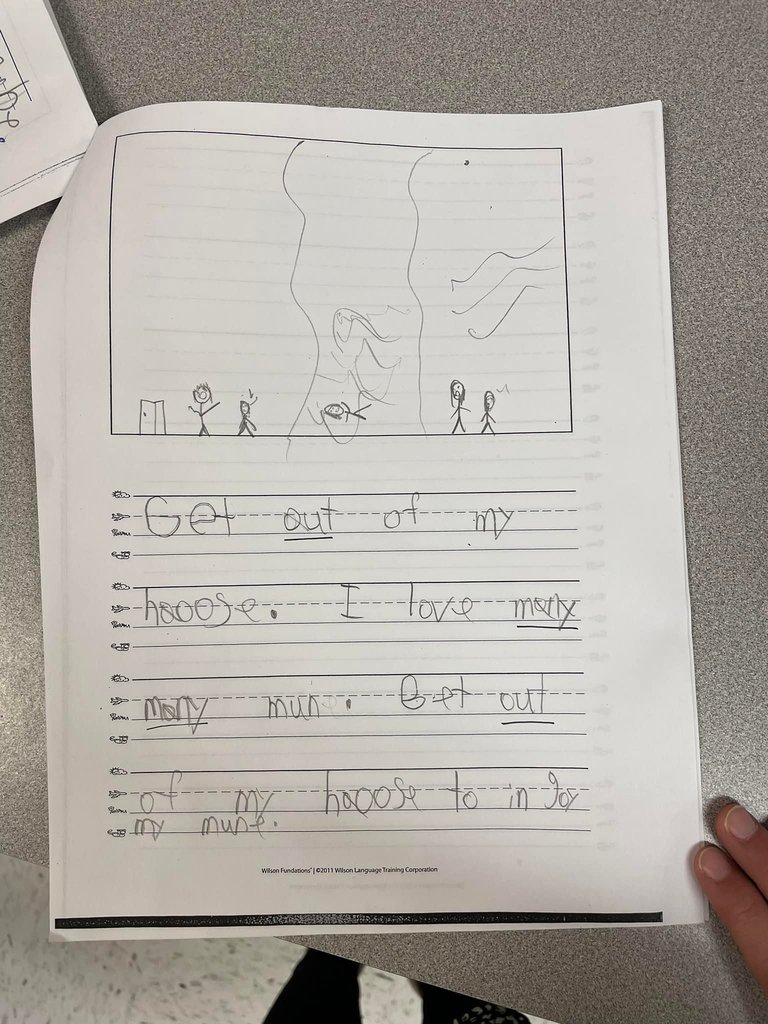 Get out of my
hooose. I love many
many mun. Get out
of my hooose to in Joy
my mune.
Wilson Fundations® | ©2011 Wilson Language Training Corporation